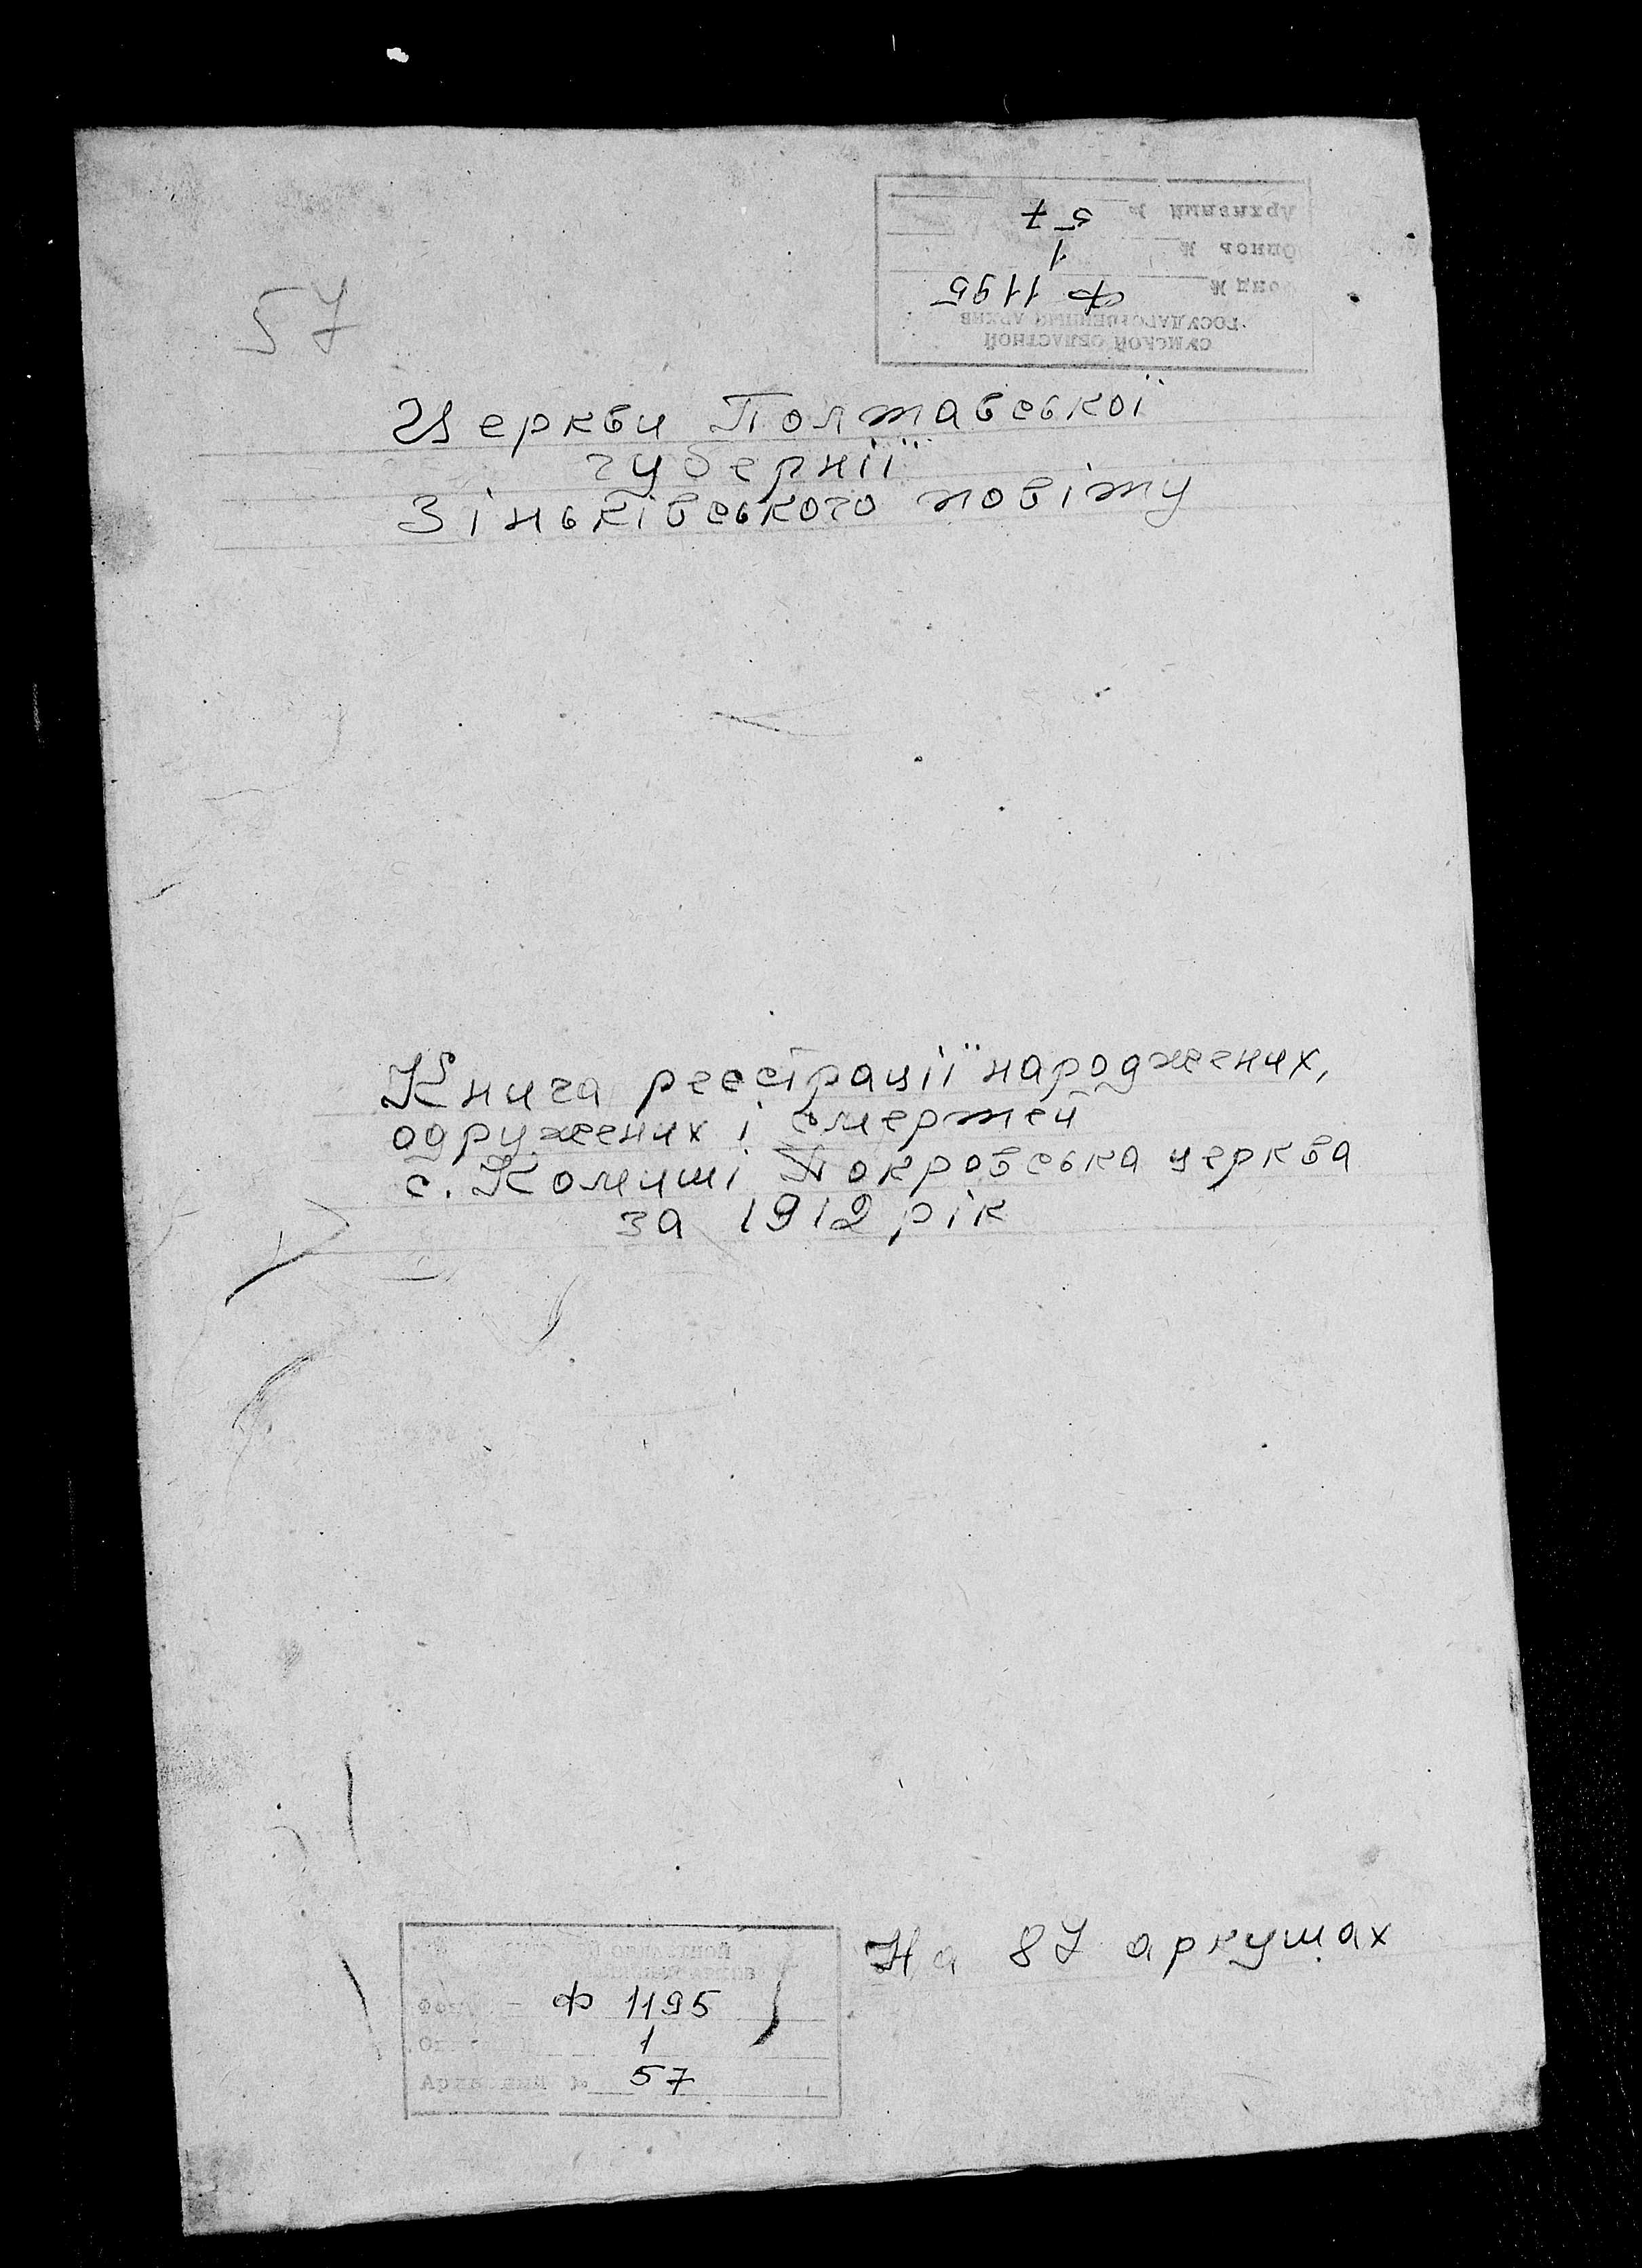 57
СУМСКОЙ ОБЛАСТНОЙ
ГОСУДАРСТВЕННЫЙ АРХИВ
Фонд № Ф 1195
Опись № 1
Архивный № 57
Церкви Полтавської
губернії
Зіньківського повіту
Книга реєстрації народжених,
одружених і смертей
с. Комиші Покровська церква
за 1912 рік
На 87 аркушах
Ф 1195
1
57